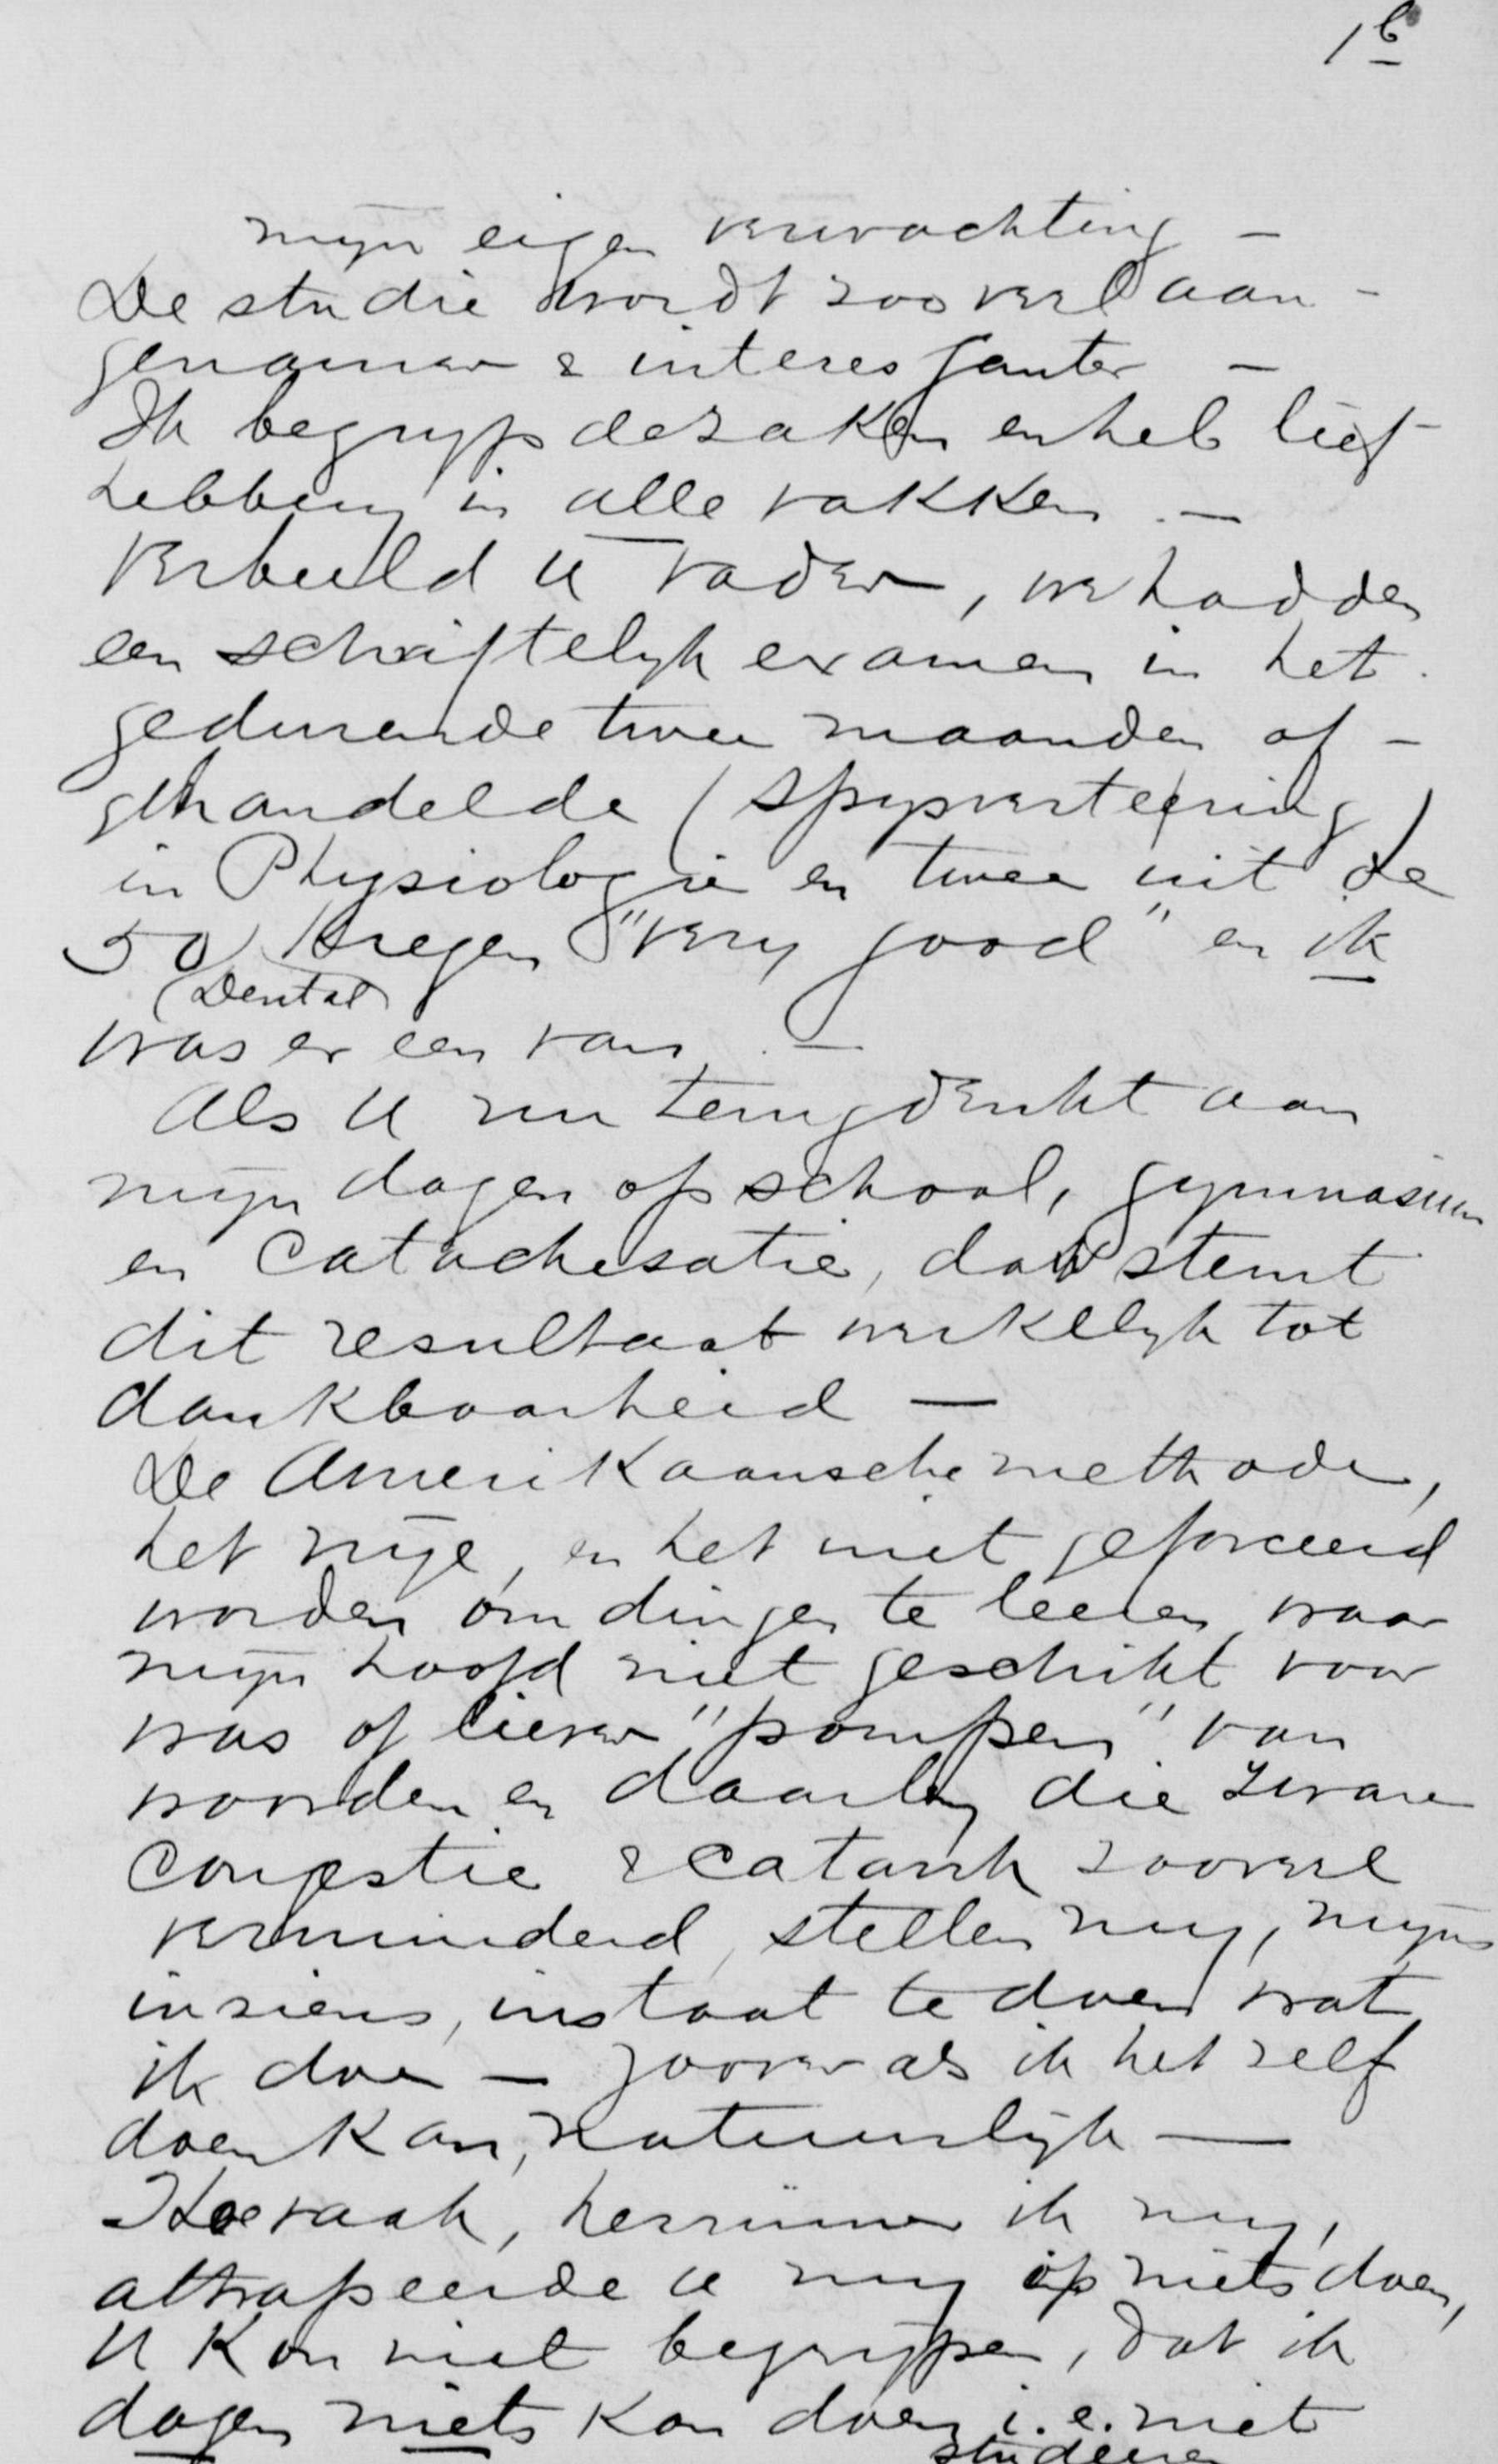 1b
mijn eigen verwachting –
De studie wordt zooveel aan-
genamer & interessanter –
Ik begrijp de zaken en heb lief-
hebberij in alle vakken. –
Verbeeld U Vader, we hadden
een schriftelijk examen in het
gedurende twee maanden af-
gehandelde (spijsverteering)
in Physiologie en twee uit de
50 kregen "very good" en ik
(Dental)
was er een van. –
Als U nu terugdenkt aan
mijn dagen op school, gymnasium
en Catachesatie, dan stemt
dit resultaat werkelijk tot
dankbaarheid –
De Amerikaansche methode,
het vrije, en het niet geforceerd
worden om dingen te leeren waar
mijn hoofd niet geschikt voor
was of liever "pompen" van
woorden en daarbij die zware
congestie & Catarrh zooveel
verminderd, stellen mij, mijns
inziens, instaat te doen wat
ik doe – zoover als ik het zelf
doen kan, natuurlijk –
Hoe vaak, herinner ik mij,
attrapeerde U mij op niets doen,
U kon niet begrijpen, dat ik
dagen niets kon doen i.e. niet
studeeren